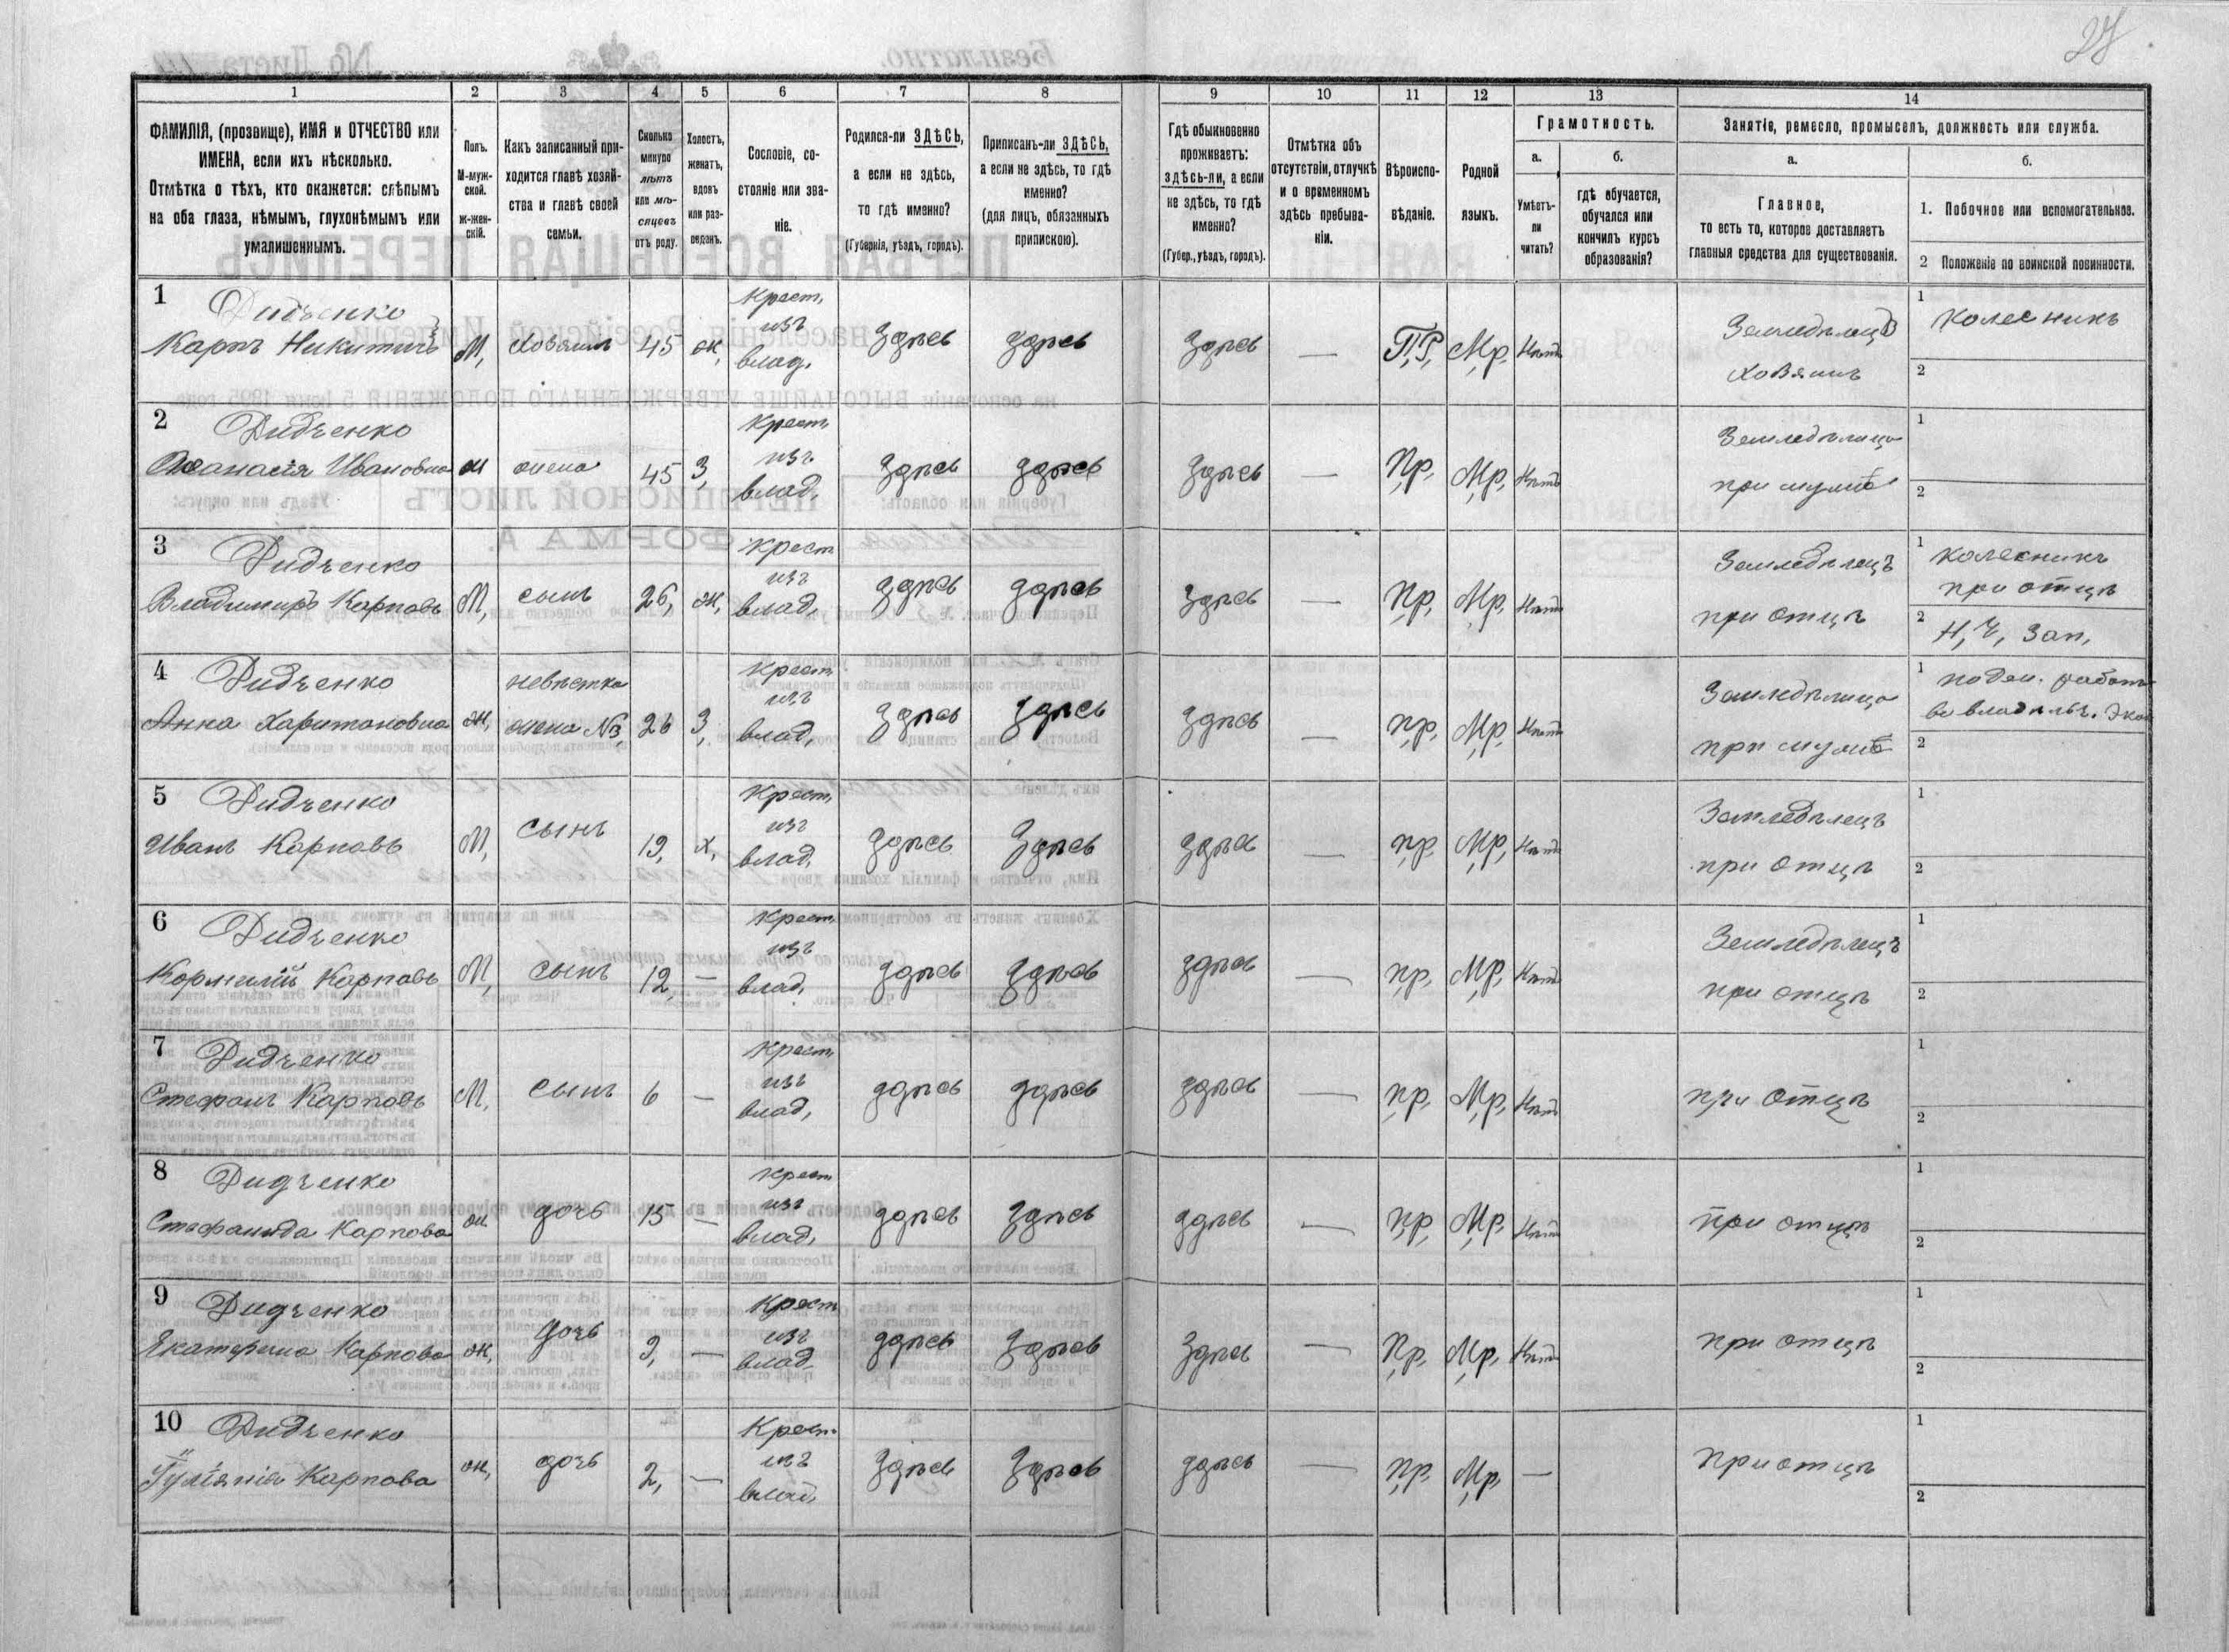 27
1
2
3
4
5
6
7
8
9
10
11
12
13
14
ФАМИЛІЯ, (прозвище), ИМЯ и ОТЧЕСТВО или
ИМЕНА, если ихъ нѣсколько.
Отмѣтка о тѣхъ, кто окажется: слѣпымъ
на оба глаза, нѣмымъ, глухонѣмымъ или
умалишеннымъ.
Полъ.
М-муж-
ской.
ж-жен-
скій.
Какъ записанный при-
ходится главѣ хозяй-
ства и главѣ своей
семьи.
Сколько
минуло
лѣтъ
или мѣ-
сяцевъ
отъ роду.
Холостъ,
женатъ,
вдовъ
или раз-
веденъ.
Сословіе, со-
стояніе или зва-
ніе.
Родился-ли ЗДѢСЬ,
а если не здѣсь,
то гдѣ именно?
(Губернія, уѣздъ, городъ).
Приписанъ-ли ЗДѢСЬ,
а если не здѣсь, то гдѣ
именно?
(для лицъ, обязанныхъ
припискою).
Гдѣ обыкновенно
проживаетъ:
здѣсь-ли, а если
не здѣсь, то гдѣ
именно?
(Губер., уѣздъ, городъ).
Отмѣтка объ
отсутствіи, отлучкѣ
и о временномъ
здѣсь пребыва-
ніи.
Вѣроиспо-
вѣданіе.
Родной
языкъ.
Грамотность.
а.
Умѣетъ-
ли
читать?
б.
гдѣ обучается,
обучался или
кончилъ курсъ
образованія?
Занятіе, ремесло, промыселъ, должность или служба.
а.
Главное,
то есть то, которое доставляетъ
главныя средства для существованія.
б.
1. Побочное или вспомогательное.
2 Положеніе по воинской повинности.
1
Дидченко
Карпъ Никитичъ
М,
Хозяинъ
45
ж,
Крест,
изъ
влад.
Здѣсь
здѣсь
Здѣсь
—
П,Р,
М,р,
Нѣтъ
Земледѣлецъ
Хозяинъ
1
Колесникъ
2
2
Дидченко
Афанасія Ивановна
ж
жена
45
З,
Крест
изъ
влад,
здѣсь
здѣсь
здѣсь
—
Пр,
М,р,
Нѣтъ
Земледѣлица
при мужѣ
1
2
3
Дидченко
Владимиръ Карповъ
М,
сынъ
26,
ж,
Крест
изъ
влад,
здѣсь
здѣсь
здѣсь
—
Пр,
М,р,
Нѣтъ
Земледѣлецъ
при отцѣ
1
колесникъ
при отцѣ
2
Н, Ч, Зап,
4
Дидченко
Анна Харитоновна
ж,
невѣстка
жена №3
26
З,
Крест
изъ
влад,
здѣсь
здѣсь
здѣсь
—
пр,
М,р,
Нѣтъ
Земледѣлица
при мужѣ
1
поден. работ
во владѣльч. Экон
2
5
Дидченко
Иванъ Карповъ
М,
сынъ
19,
х,
Крест,
изъ
влад,
здѣсь
здѣсь
здѣсь
—
пр,
М,р,
Нѣтъ
Земледѣлецъ
при отцѣ
1
2
6
Дидченко
Корнилій Карповъ
М,
сынъ
12,
—
Крест,
изъ
влад,
здѣсь
здѣсь
здѣсь
—
пр,
М,р,
Нѣтъ
Земледѣлецъ
при отцѣ
1
2
7
Дидченко
Стефанъ Карповъ
М,
сынъ
6
—
Крест,
изъ
влад,
здѣсь
здѣсь
здѣсь
—
пр,
М,р,
Нѣтъ
при отцѣ
1
2
8
Дидченко
Стефанида Карпова
ж
дочь
15
—
Крест
изъ
влад,
здѣсь
здѣсь
здѣсь
—
пр,
М,р,
Нѣтъ
при отцѣ
1
2
9
Дидченко
Екатерина Карпова
ж,
дочь
9,
—
Крест
изъ
влад
здѣсь
здѣсь
здѣсь
—
Пр,
М,р,
Нѣтъ
при отцѣ
1
2
10
Дидченко
Карпова
ж,
дочь
2,
—
Крест.
изъ
влад,
здѣсь
здѣсь
здѣсь
—
пр,
М,р,
—
при отцѣ
1
2